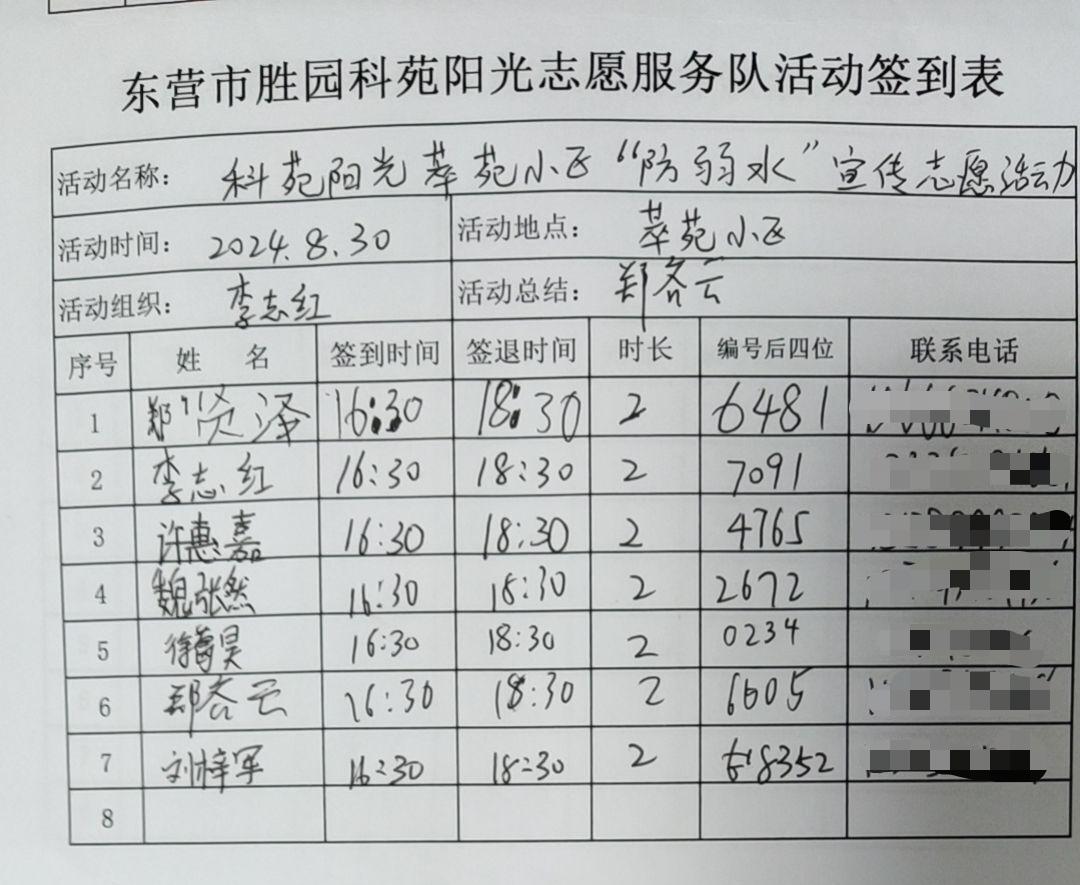 东营市胜园科苑阳光志愿服务队活动签到表
活动名称: 科苑阳光萃苑小区“防弱水”宣传志愿活动
活动时间: 2024.8.30 活动地点: 萃苑小区
活动组织: 李志红 活动总结: 郑容云
序号 姓 名 签到时间 签退时间 时长 编号后四位 联系电话
1 郑贤泽 16:30 18:30 2 6481
2 李志红 16:30 18:30 2 7091
3 许惠嘉 16:30 18:30 2 4765
4 魏张然 16:30 18:30 2 2672
5 徐昊 16:30 18:30 2 0234
6 郑容云 16:30 18:30 2 6605
7 刘梓军 16:30 18:30 2 8352
8